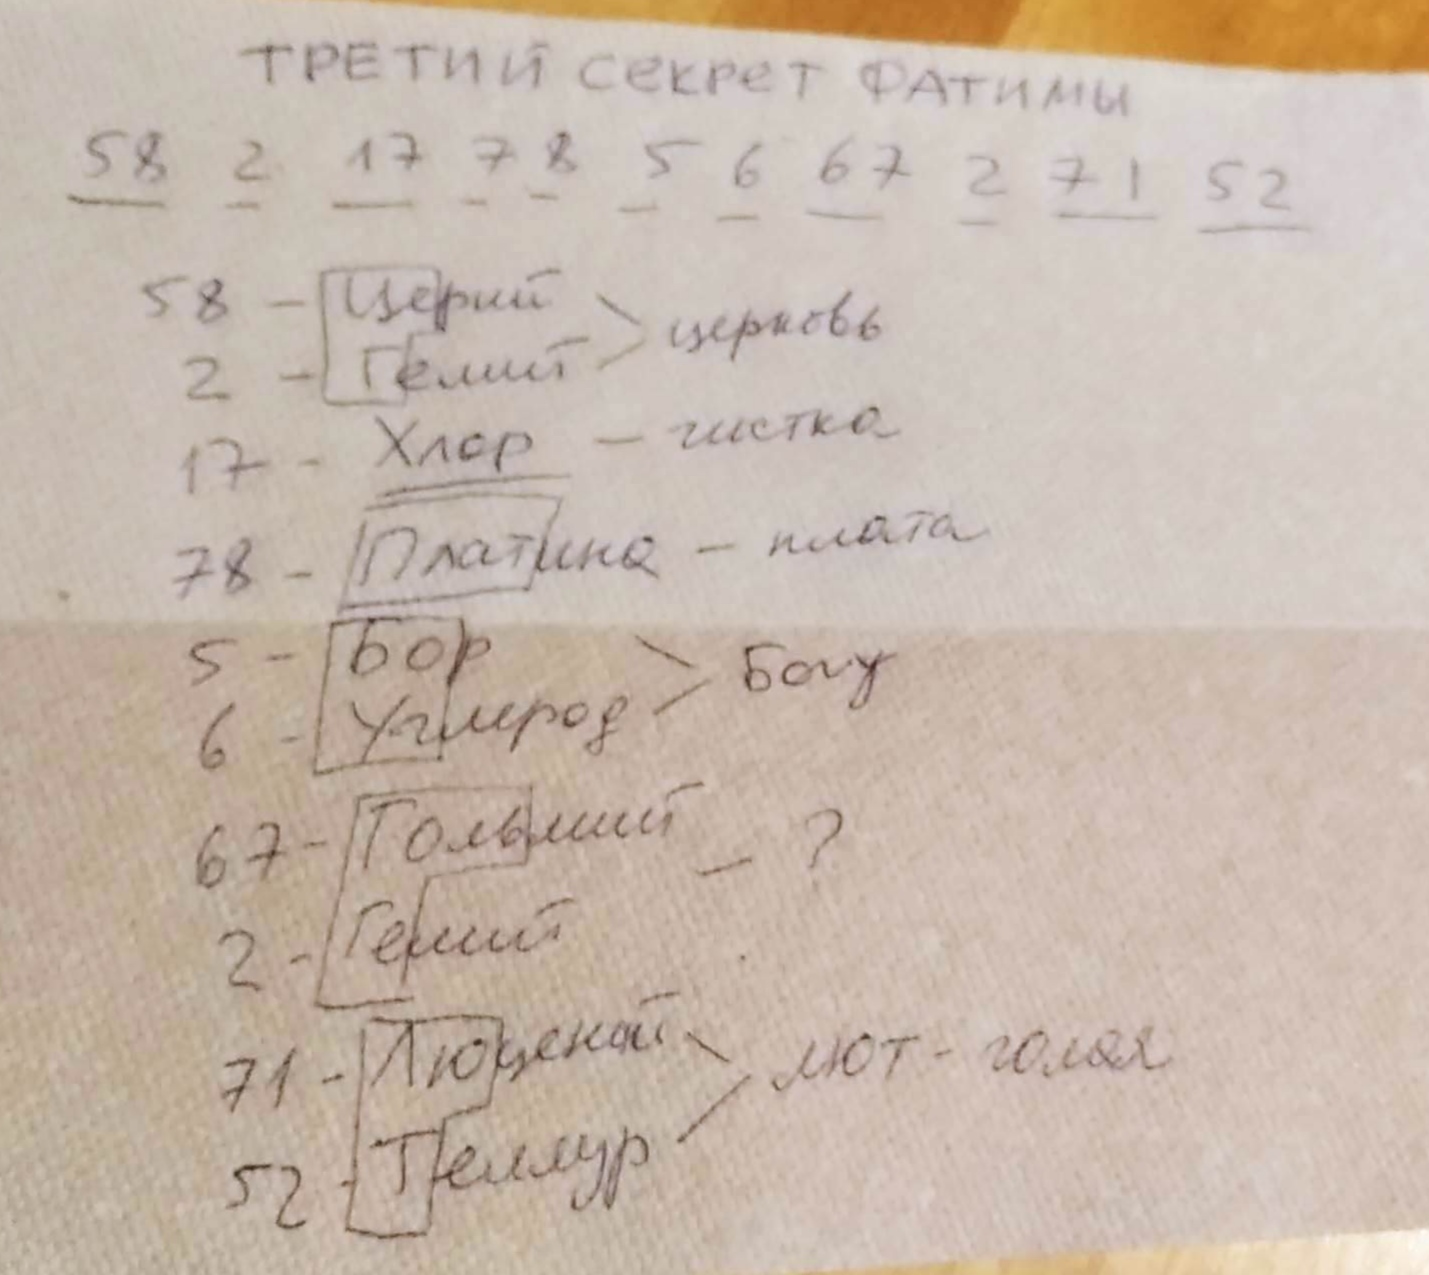 ТРЕТИЙ СЕКРЕТ ФАТИМЫ
58 2 17 7 8 5 6 67 2 71 52
58 - Церий
церковь
2 - Гелий
17 - Хлор - чистка
78 - Платина - плата
5 - Бор
Богу
6 - Углерод
67 - Гольмий
- ?
2 - Гелий
71 - Люценай
лют - голая
52 - Теллур